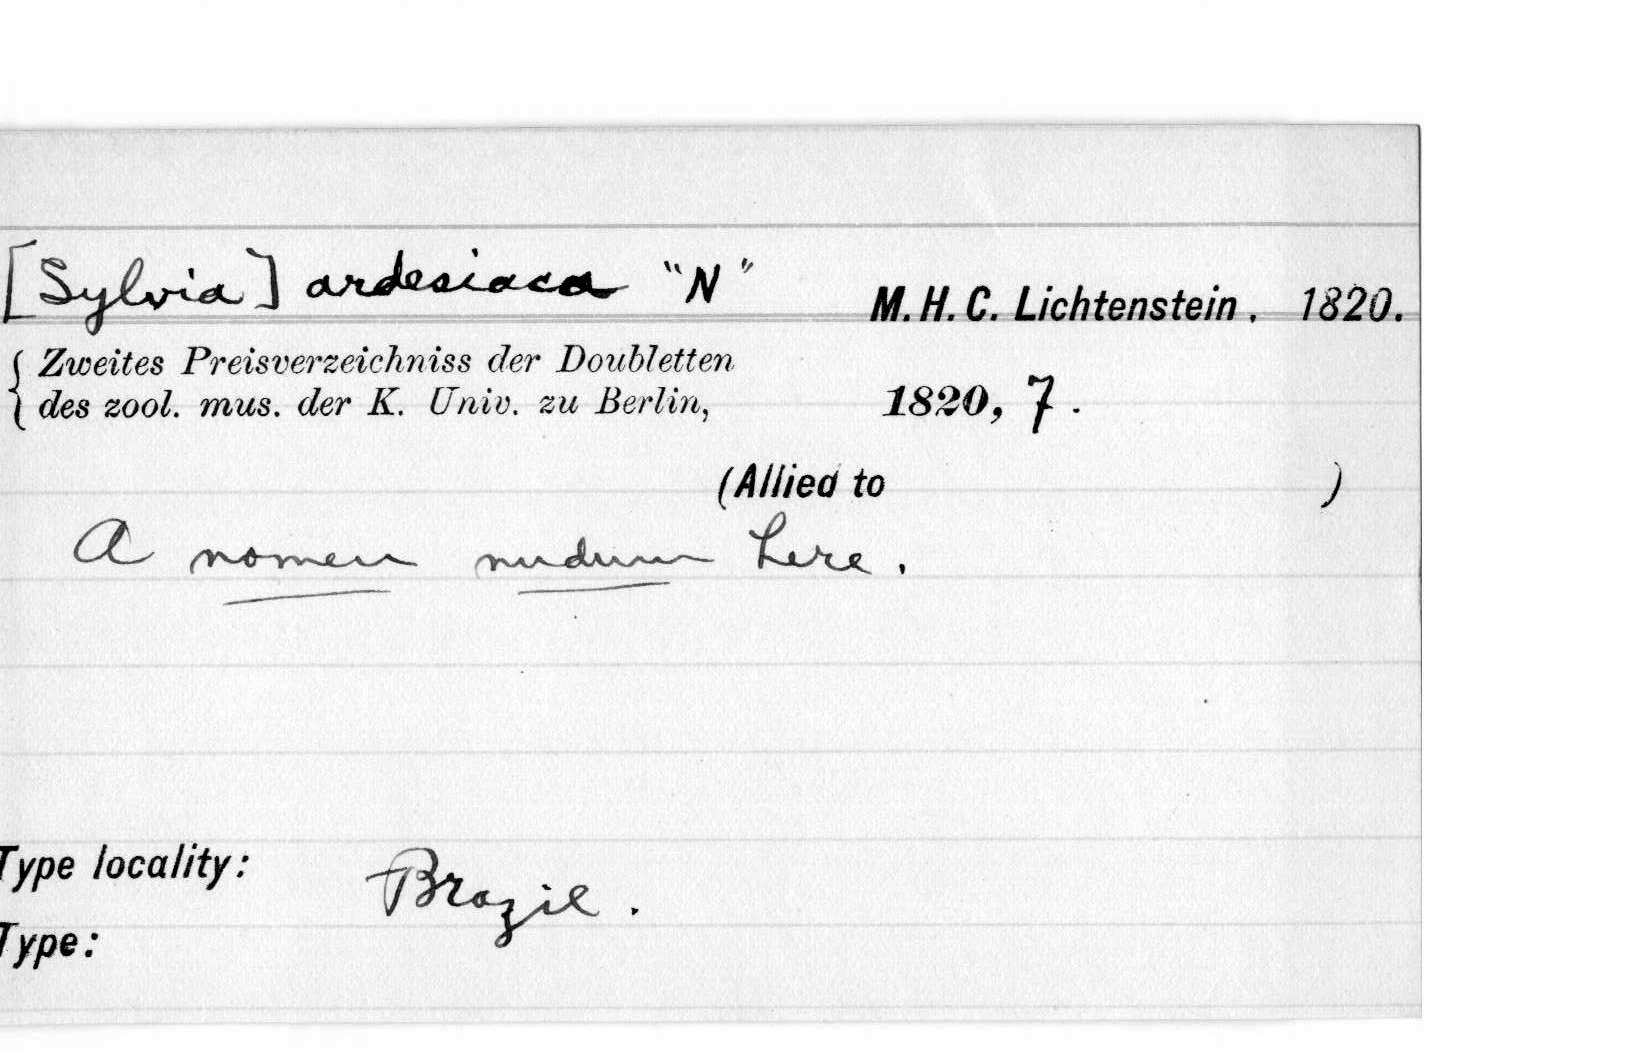 [Sylvia] ardesiaca "N" M. H. C. Lichtenstein. 1820.
{ Zweites Preisverzeichniss der Doubletten
des zool. mus. der K. Univ. zu Berlin, 1820, 7.
(Allied to )
A nomen nudum here.
Type locality: Brazil.
Type: